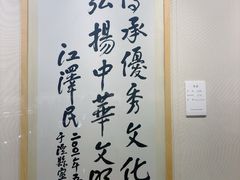 傳承優秀文化
弘揚中華文明
江澤民
二〇〇一年五
于涇縣宣